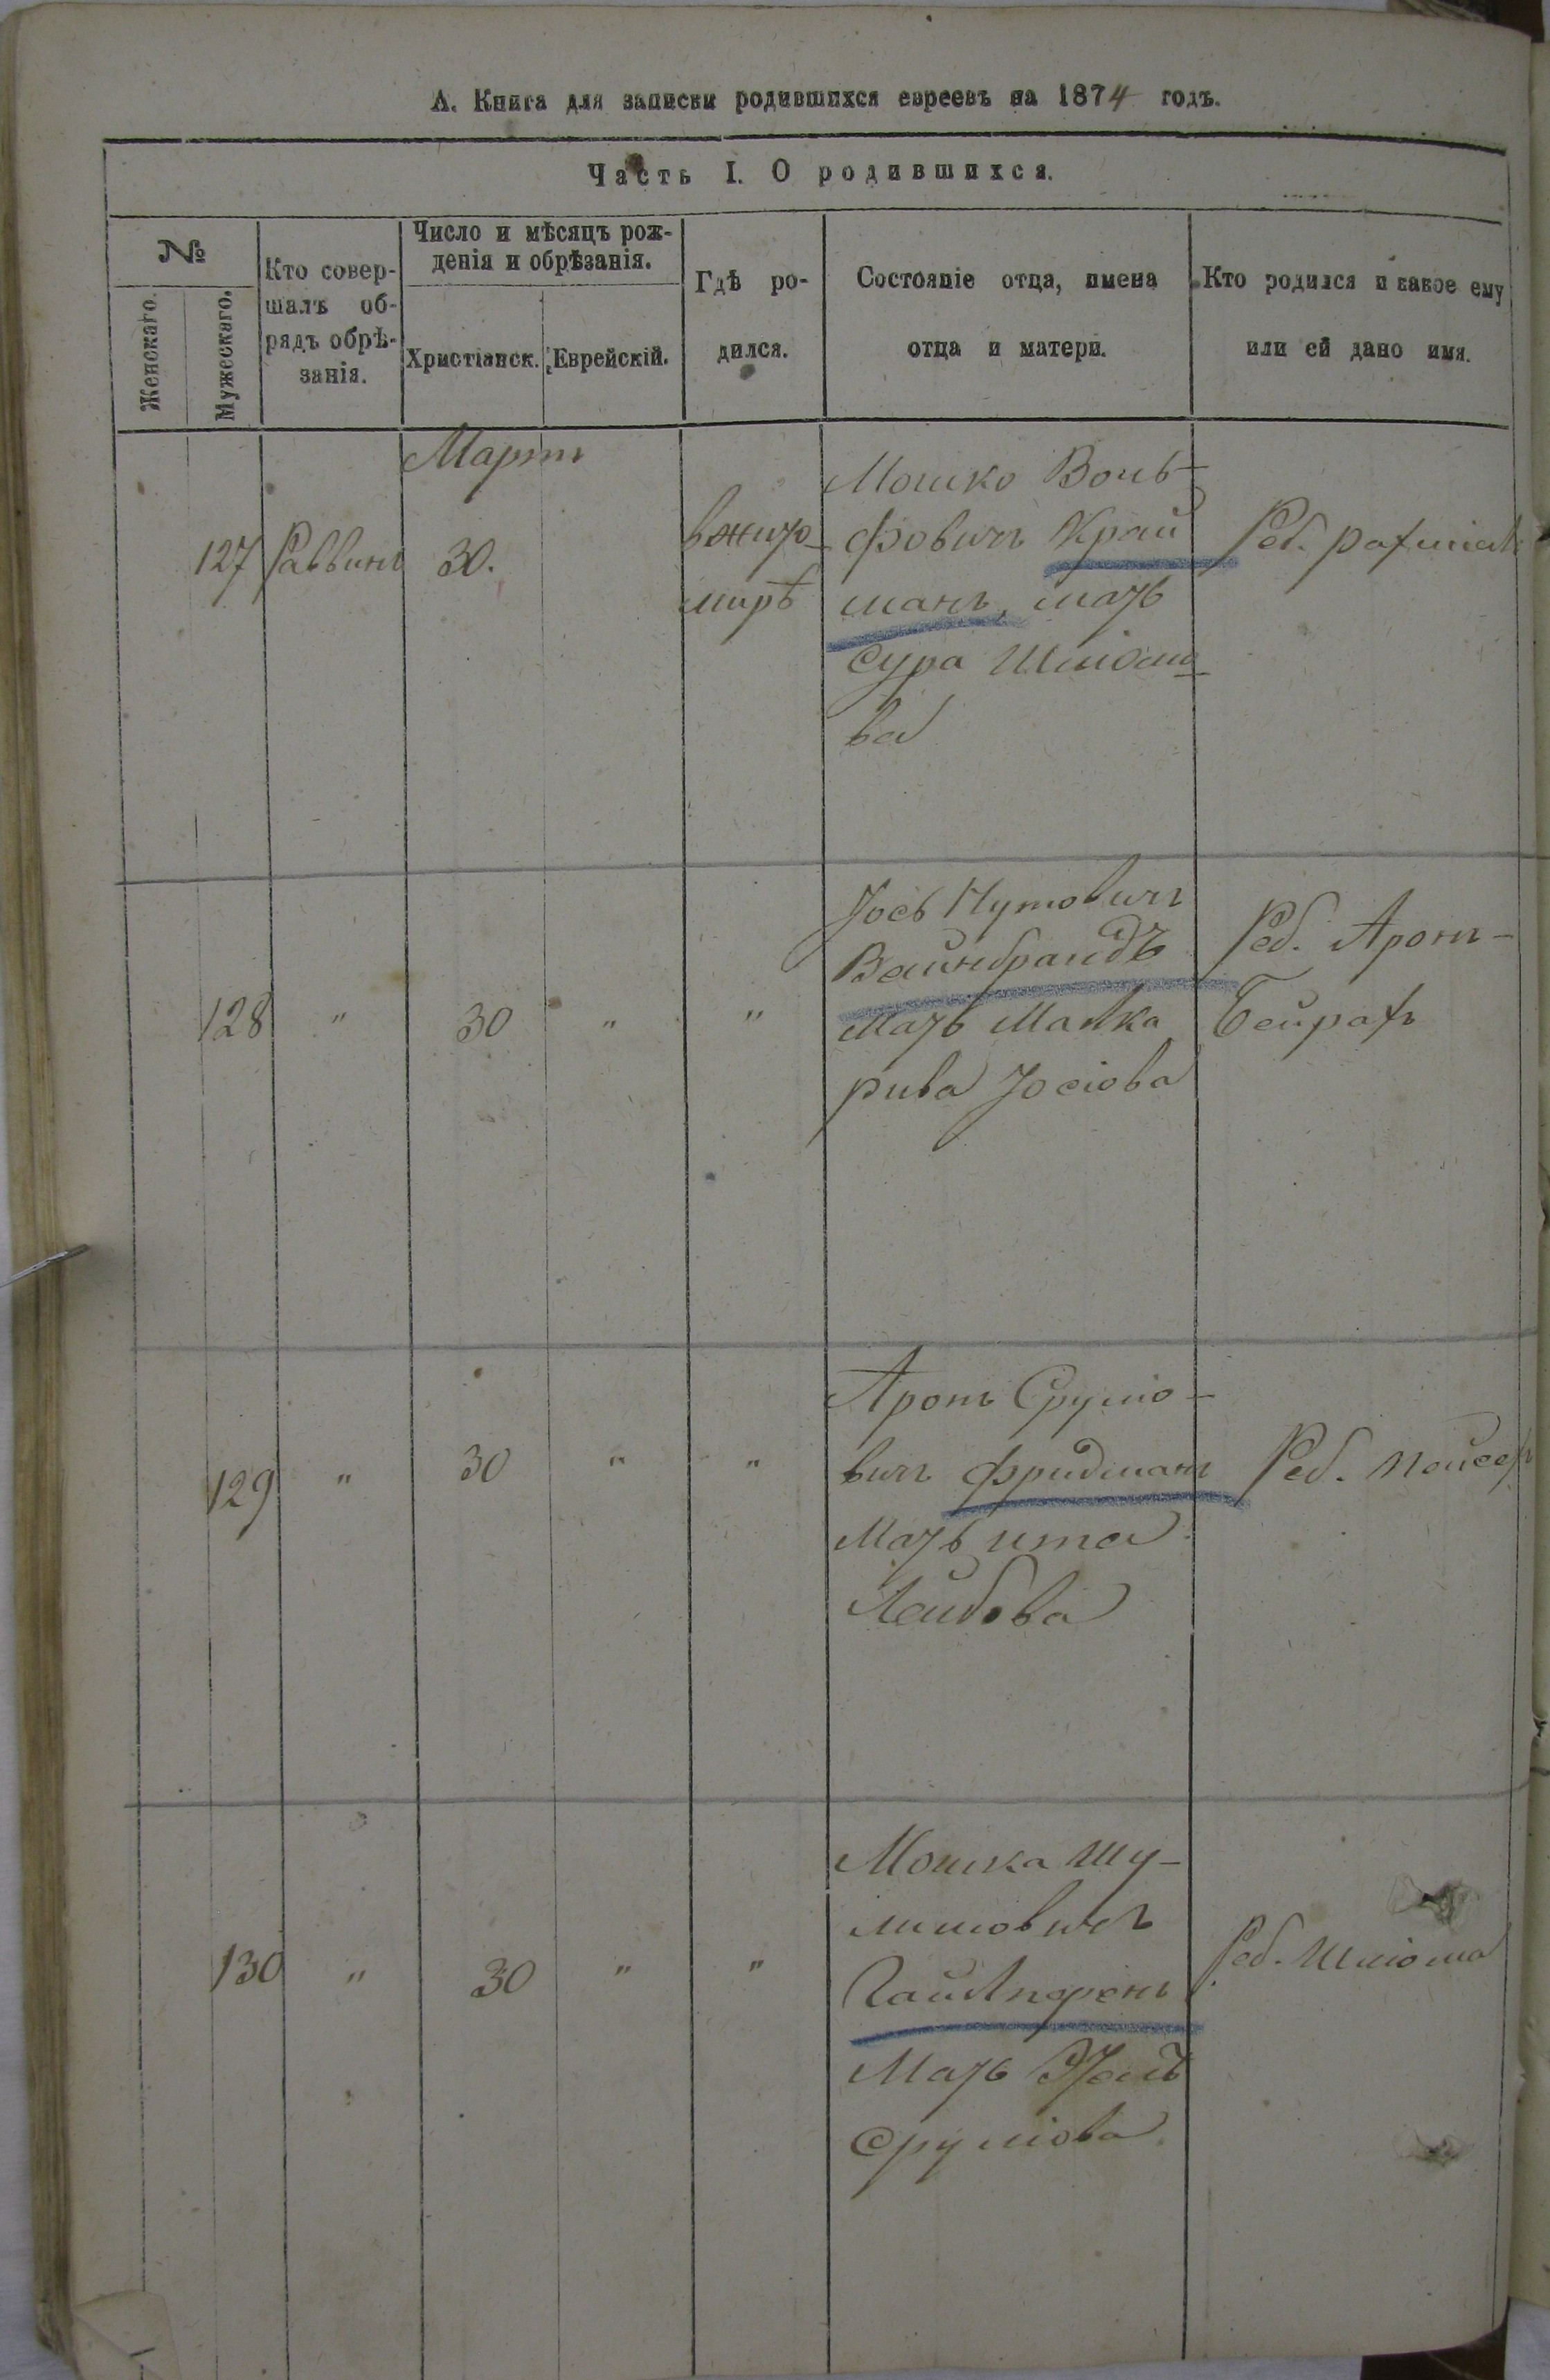 А. Книга для записки родившихся евреевъ на 1874 годъ.
Часть I. О родившихся.
№
Женскаго.
Мужескаго.
Кто совер-
шалъ об-
рядъ обрѣ-
занія.
Число и мѣсяцъ рож-
денія и обрѣзанія.
Христіанск.
Еврейскій.
Гдѣ ро-
дился.
Состояніе отца, имена
отца и матери.
Кто родился и какое ему
или ей дано имя.
Мартъ
127
Раввинъ
30.
в Жито-
мирѣ
Мошко Воль-
фовичъ Край
манъ, мать
Сура Шліомо-
ва
Реб. Рахміель
128
"
30
"
"
Іось Нутовичъ
Вайнбрандъ
Мать Малка
Рива Іосіова
Реб. Аронъ-
Бейрахъ
129
"
30
"
"
Аронъ Сруліо-
вичъ Фридманъ
Мать Ита
Лейбова
Реб. Пейсахъ
130
"
30
"
"
Мошка Шу-
лимовичъ
Мать
Сруліова
Реб. Шліома